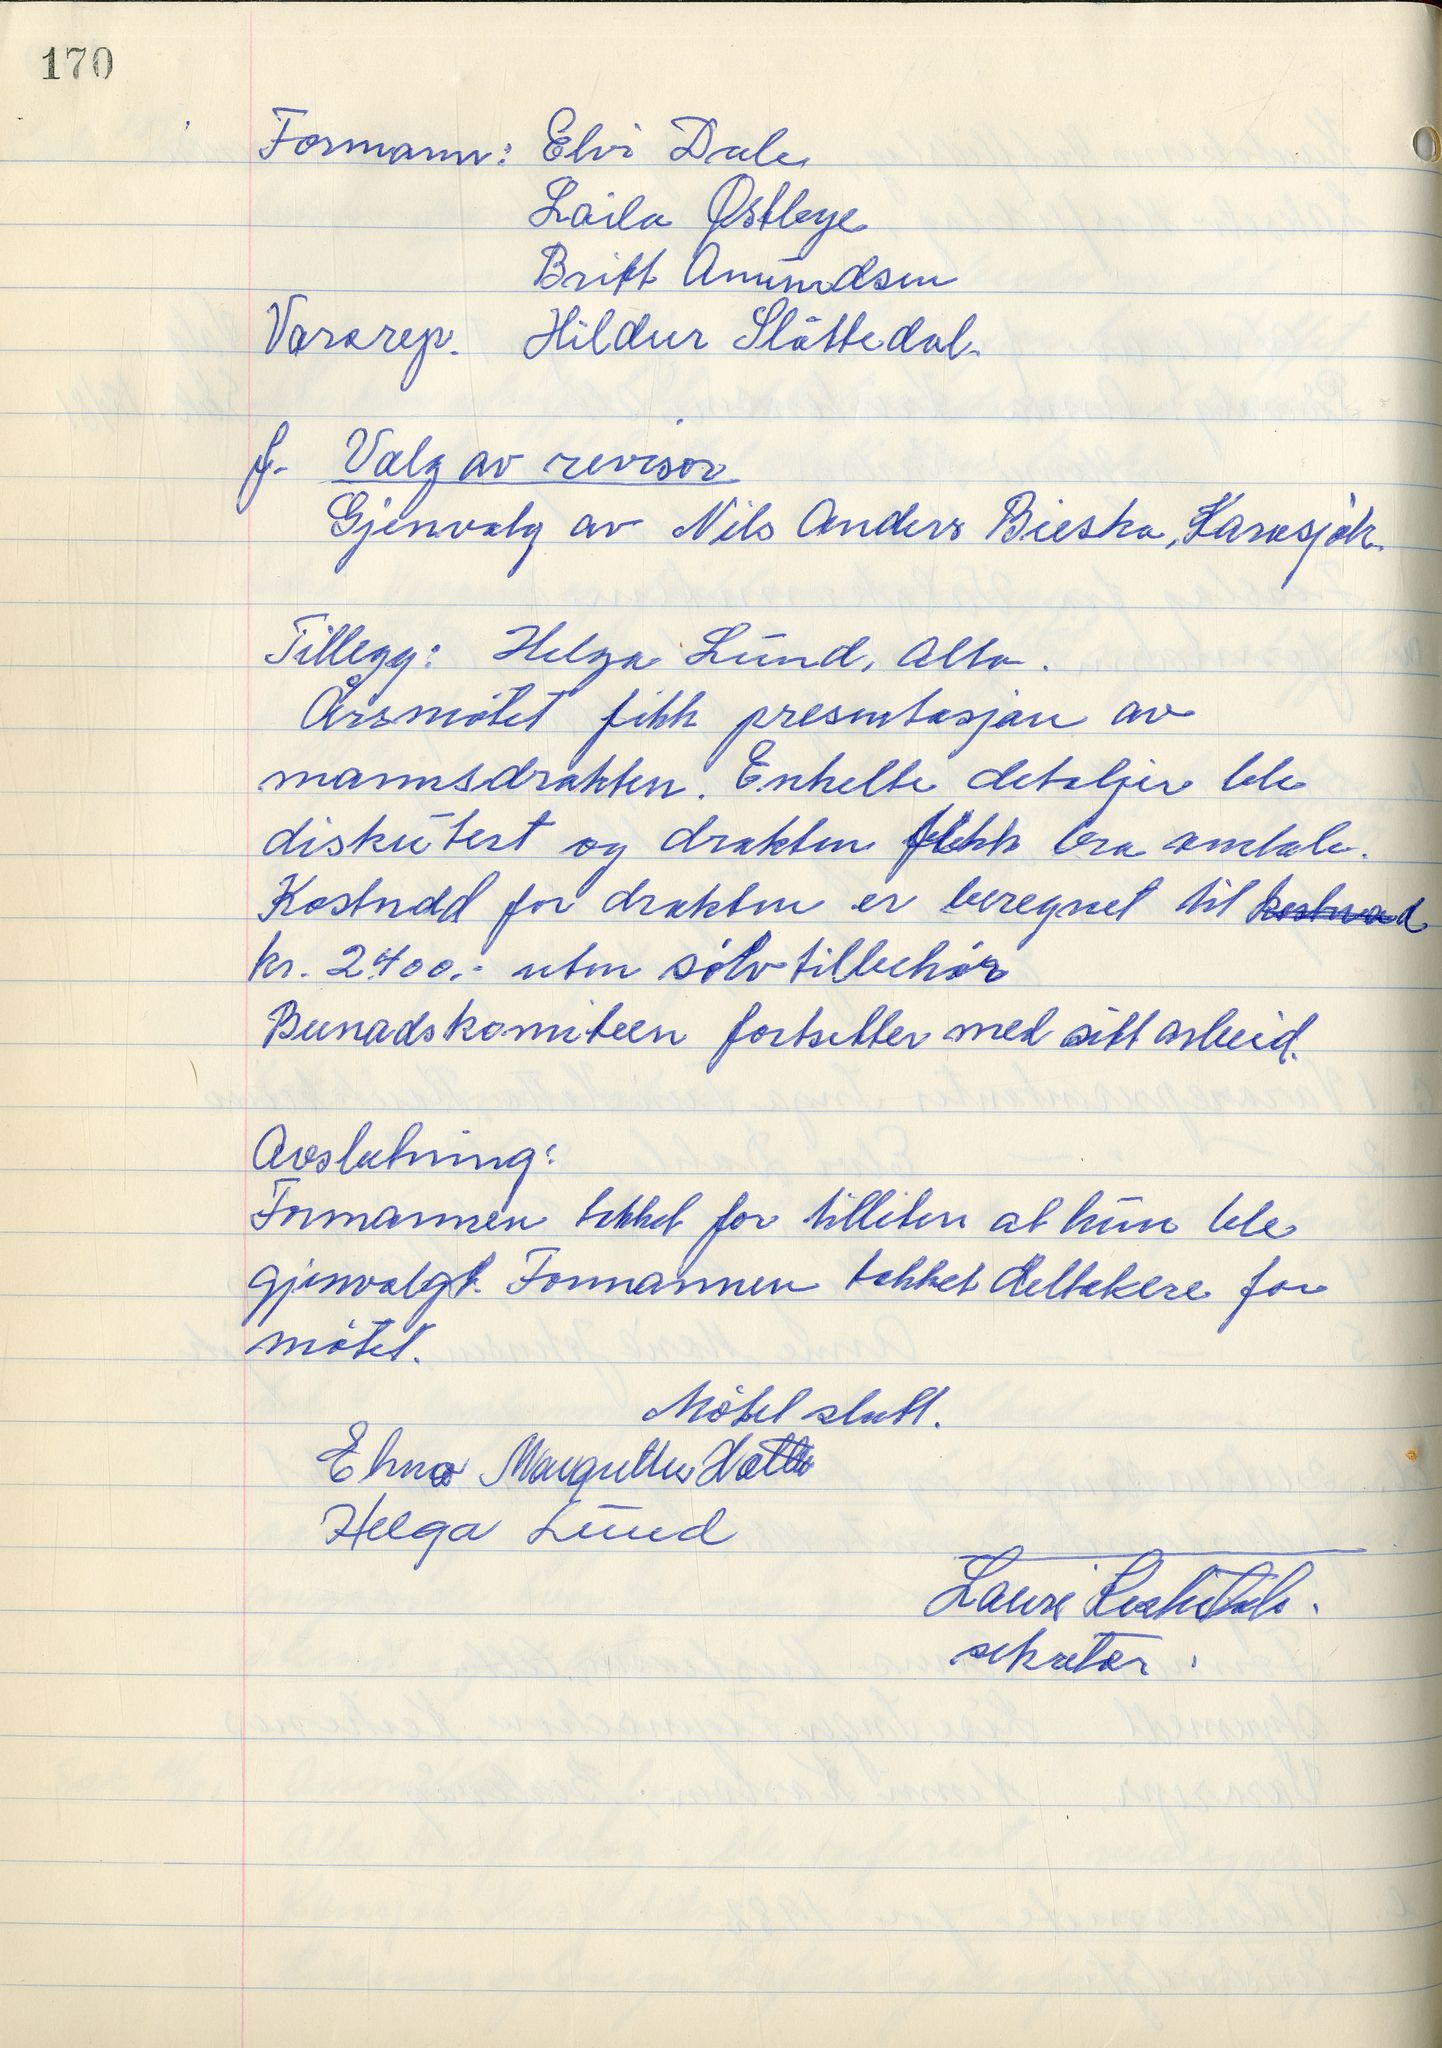 170
Formann: Elvi Dale
Laila Østbye
Britt Amundsen
Vararep. Hildur Slåttedal.
f. Valg av revisor
Gjenvalg av Nils Anders Bieska, Karasjok.
Tillegg: Helga Lund, Alta.
Årsmøtet fikk presentasjon av
mannsdrakten. Enkelte detaljer ble
diskutert og drakten fikk bra omtale.
Kostnad for drakten er beregnet til kostnad
kr. 2400.- uten sølvtilbehør
Bunadskomiteen fortsetter med sitt arbeid.
Avslutning:
Formannen takket for tilliten at hun ble
gjenvalgt. Formannen takket deltakere for
møtet.
Møtet slutt.
Margrethe Hætta
Helga Lund
Lauri Keskitalo.
sekretær.